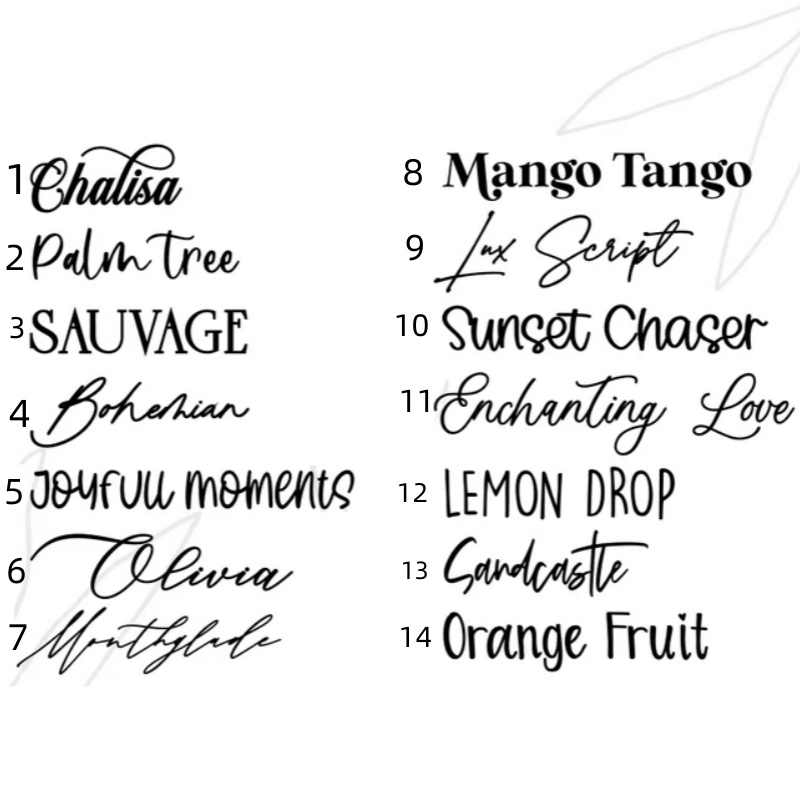 1 Chalisa
2 Palm Tree
3 SAUVAGE
4 Bohemian
5 Joyfull moments
6 Olivia
7 Monthglade
8 Mango Tango
9 Lux Script
10 Sunset Chaser
11 Enchanting Love
12 LEMON DROP
13 Sandcastle
14 Orange Fruit